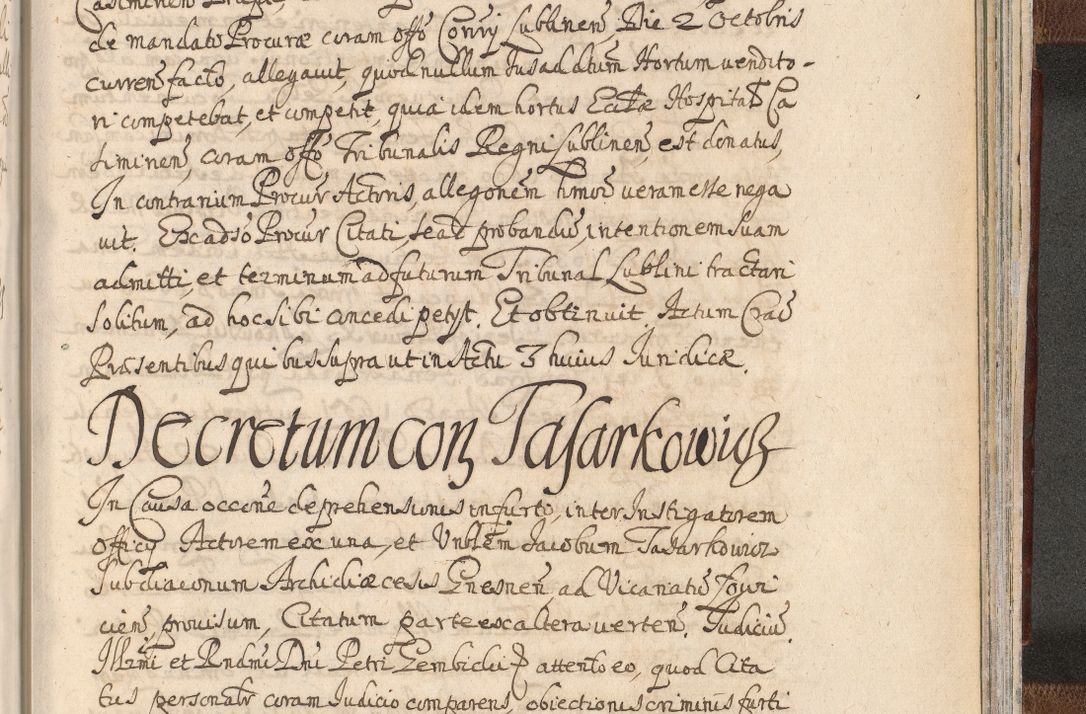 de mandato Procuræ coram offō Consrj Lublinen̄ Die 2 Octobris
curren̄ facto, allegavit, quod nullum Ius ad dictum Hortum vendito-
ri competebat, et competit, quia idem hortus Ecclæ Hospital Ca
timinen̄, coram offō Tribunalis Regni Lublinen̄, est donatus,
In contrarium Procur̄ Actoris, allegonēm timor̄ veram esse nega
vit. Ex adso Procur̄ Citati, se ad probandū, intentionem suam
admitti, et terminum ad futurum Tribunal Lublini tractari
solitum, ad hoc sibi concedi petijt. Et obtinuit. Actum Crac̄
Præsentibus quibus supra ut in Actu 3 huius Iuridicæ.
Decretum con Tasarkowicz
In Causa occōne deprehensionis in furto, inter Instigatorem
officij Actorem ex una, et Vnblēm Iacobum Tasarkowicz
Subdiaconum Archidiæcesis Gnesnen̄, ad Vicariatū Iowi
cien̄, provisum, Citatum parte ex altera verten̄. Iudiciū
Illmi et Rndmi Dni Petri Gembicki attento eo, quod Cita
tus personalr coram Iudicio comparens, obiectionis criminis furti